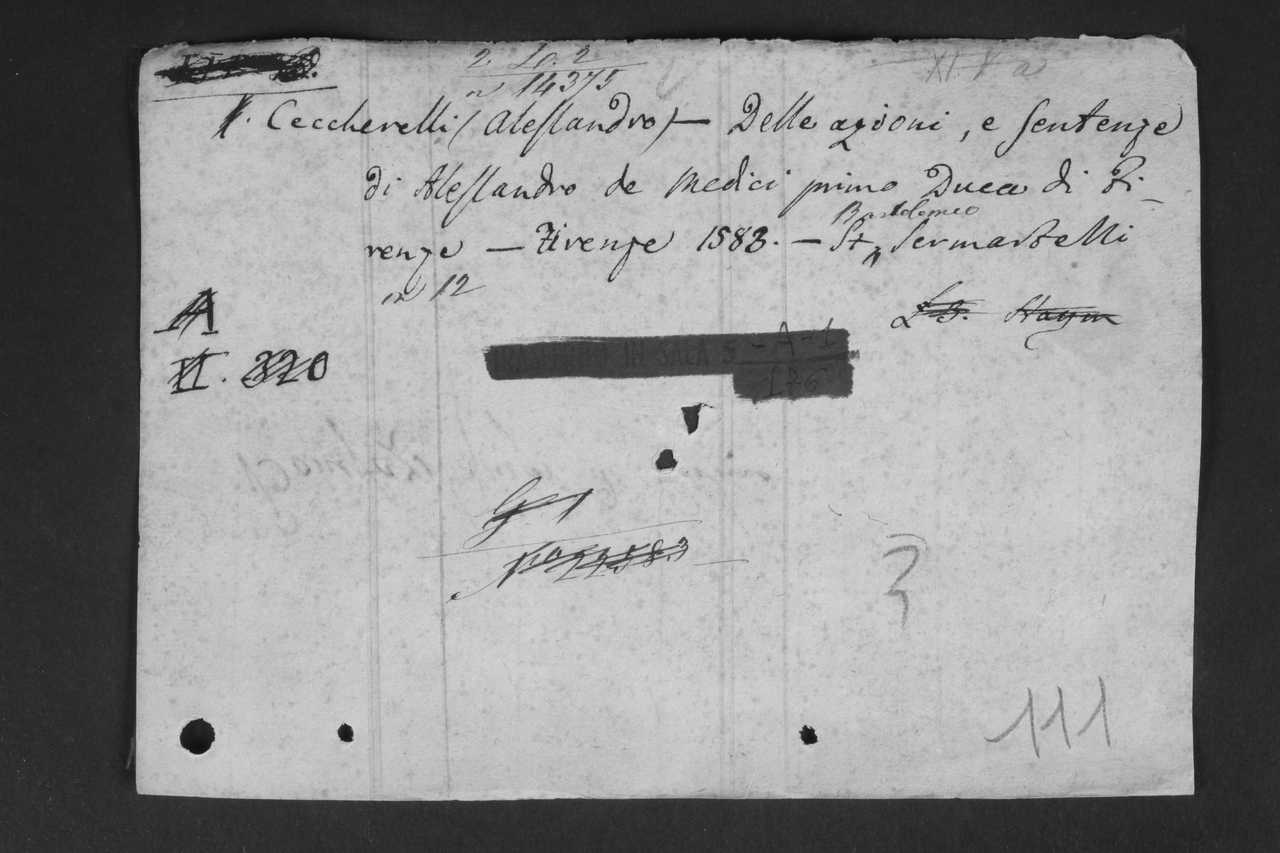 2. Lo. 2
n 14375
XI V a
Ceccherelli (Alessandro) — Delle azioni, e sentenze
di Alessandro de Medici primo Duca di Fi-
Bartolomeo
renze — Firenze 1583. — St. Sermartelli
in 12
A
II. 320
L. B. Haym
TRASFERITO IN SALA 5 - A - 1
176
G 1
No 22583
3
111